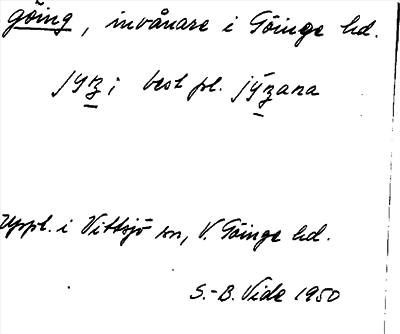 göing, invånare i Göinge hd.
jyʒ; best pl. jýʒana
Uppt. i Vittsjö sn, V. Göinge hd.
S.-B. Vide 1950